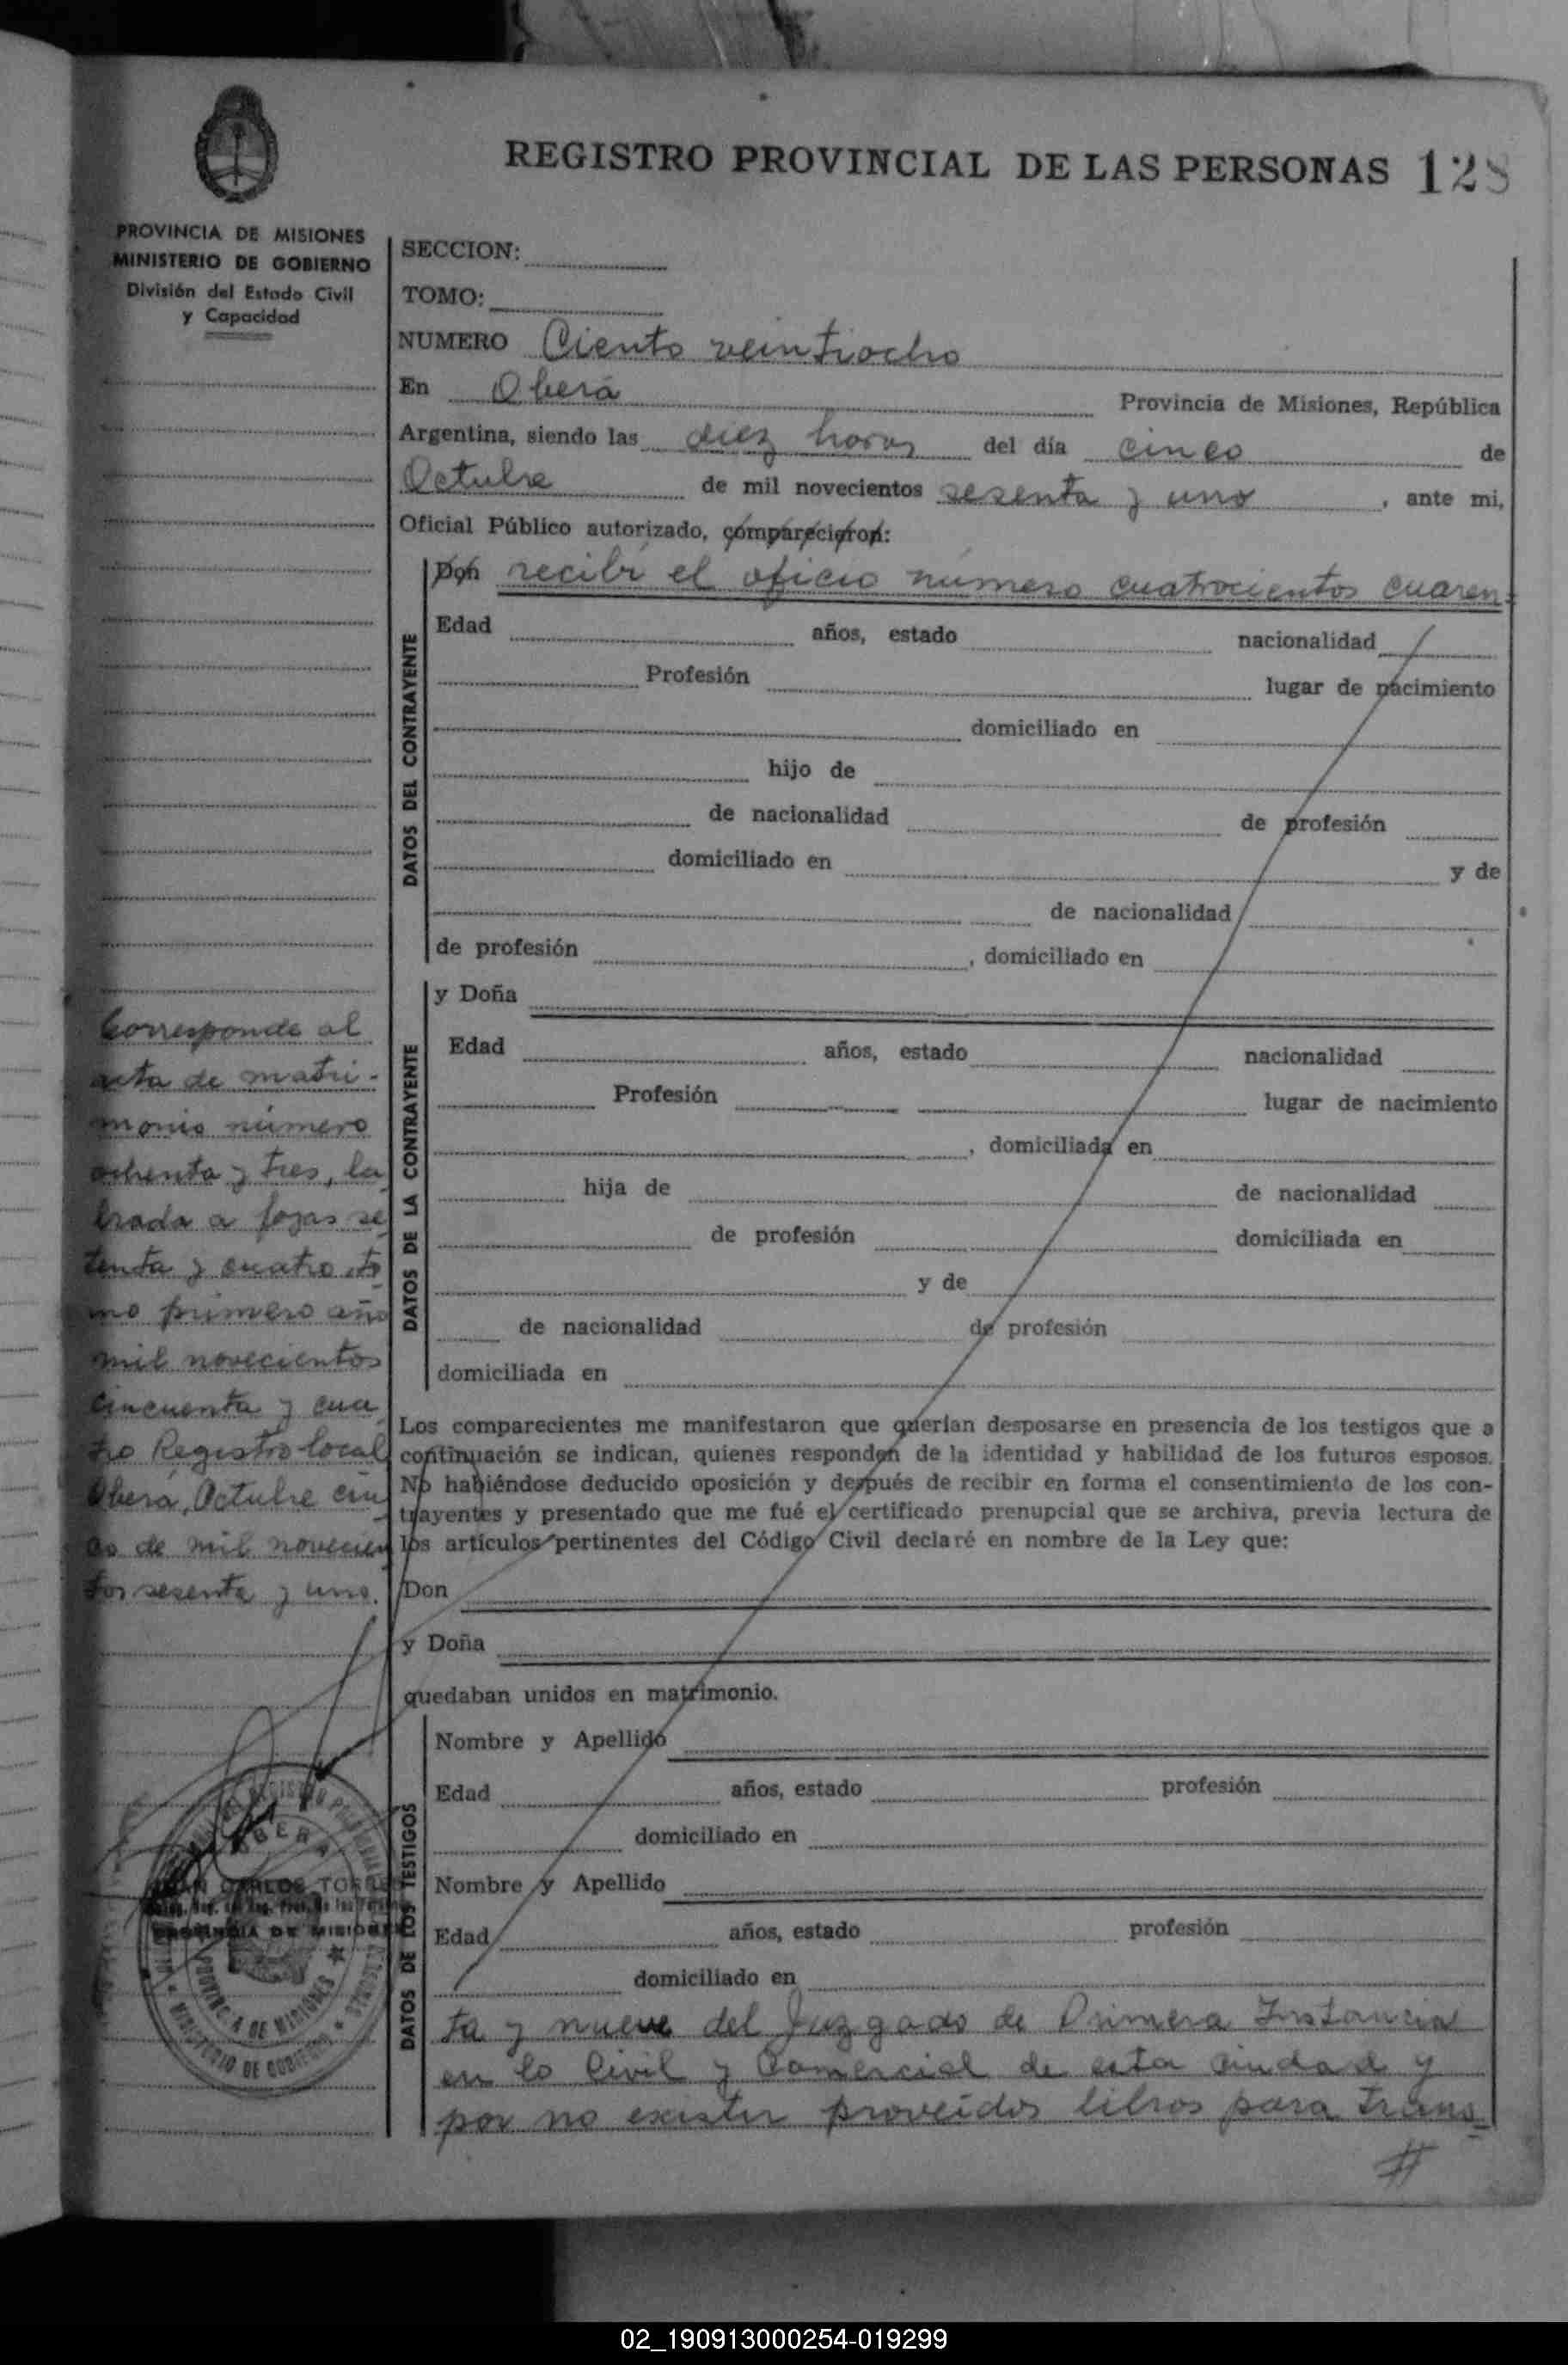 REGISTRO PROVINCIAL DE LAS PERSONAS 128
PROVINCIA DE MISIONES
MINISTERIO DE GOBIERNO
División del Estado Civil
y Capacidad
SECCION:
TOMO:
NUMERO Ciento veintiocho
En Oberá Provincia de Misiones, República
Argentina, siendo las diez horas del día cinco de
Octubre de mil novecientos sesenta y uno, ante mi,
Oficial Público autorizado, comparecieron:
Don recibí el oficio número cuatrocientos cuaren=
DATOS DEL CONTRAYENTE
Edad años, estado nacionalidad
Profesión lugar de nacimiento
domiciliado en
hijo de
de nacionalidad de profesión
domiciliado en y de
de nacionalidad
de profesión , domiciliado en
y Doña
DATOS DE LA CONTRAYENTE
Edad años, estado nacionalidad
Profesión lugar de nacimiento
, domiciliada en
hija de de nacionalidad
de profesión domiciliada en
y de
de nacionalidad de profesión
domiciliada en
Los comparecientes me manifestaron que querían desposarse en presencia de los testigos que a
continuación se indican, quienes responden de la identidad y habilidad de los futuros esposos.
No habiéndose deducido oposición y después de recibir en forma el consentimiento de los con-
trayentes y presentado que me fué el certificado prenupcial que se archiva, previa lectura de
los artículos pertinentes del Código Civil declaré en nombre de la Ley que:
Don
y Doña
quedaban unidos en matrimonio.
DATOS DE LOS TESTIGOS
Nombre y Apellido
Edad años, estado profesión
domiciliado en
Nombre y Apellido
Edad años, estado profesión
domiciliado en
ta y nueve del Juzgado de Primera Instancia
en lo Civil y Comercial de esta ciudad y
por no existir proveídos libros para trans
#
Corresponde al
acta de matri-
monio número
ochenta y tres, la
brada a fojas se
tenta y cuatro, to
mo primero año
mil novecientos
cincuenta y cua
tro Registro local
Oberá, Octubre cin
co de mil novecien
tos sesenta y uno.
OBERA
JUAN CARLOS TORRES
PROVINCIA DE MISIONES
PROVINCIA DE MISIONES
MINISTERIO DE GOBIERNO
02_190913000254-019299